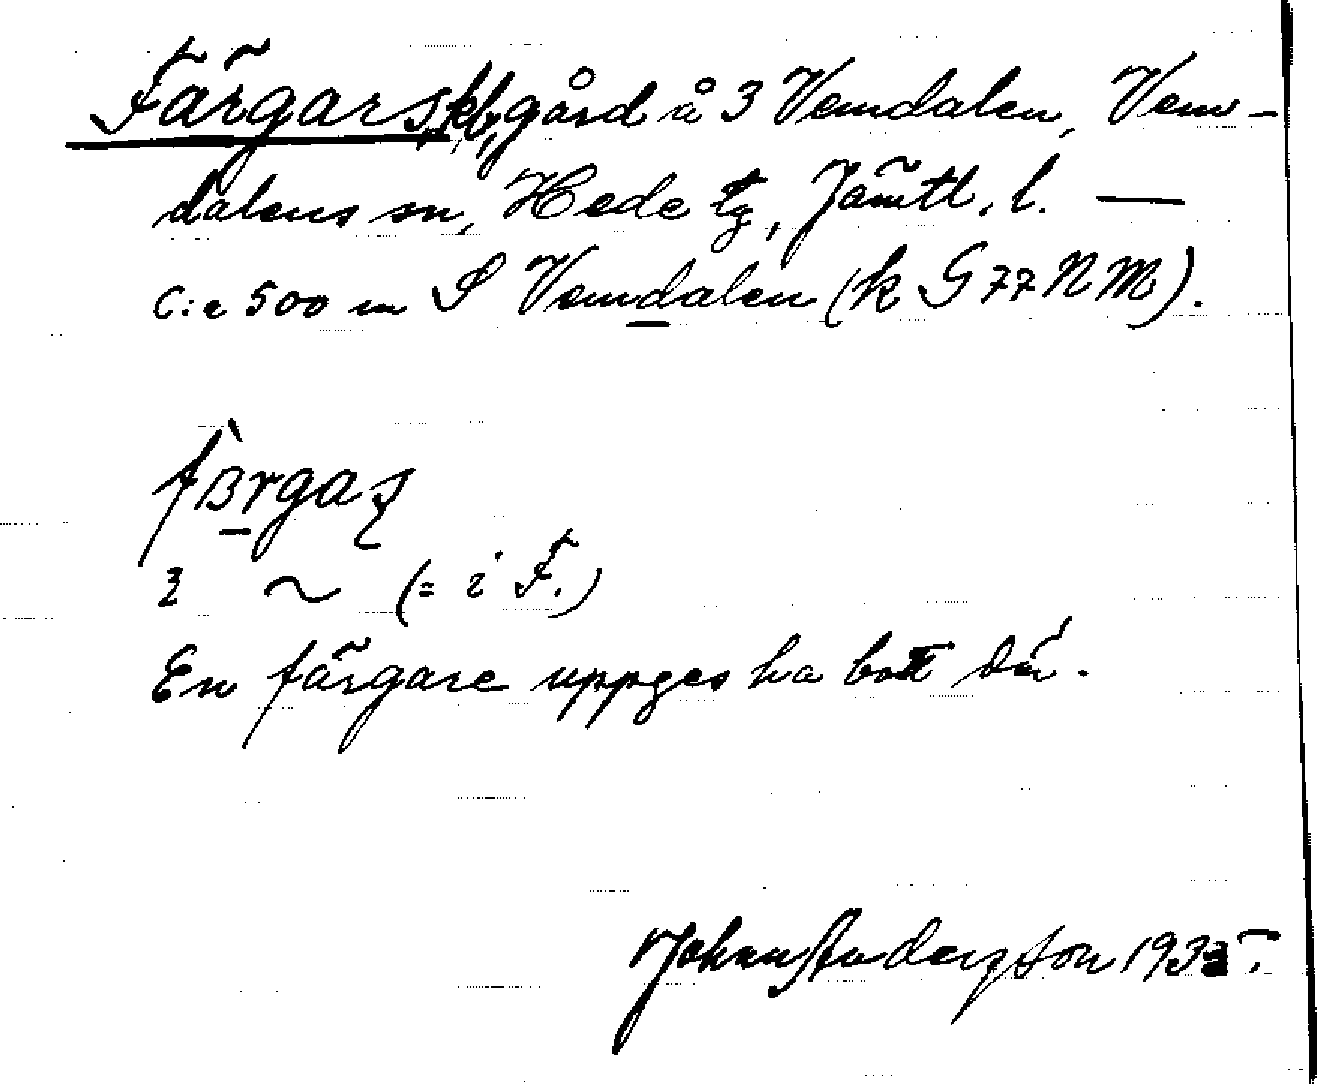 Färgars, kb, gård å 3 Vemdalen, Vem-
dalens sn, Hede tg, Jämtl. l. —
C:a 500 m S Vemdalen (k G 77 NM).
färgaʂ
~ (= i F.)
En färgare uppges ha bott där.
Johan Anderzson